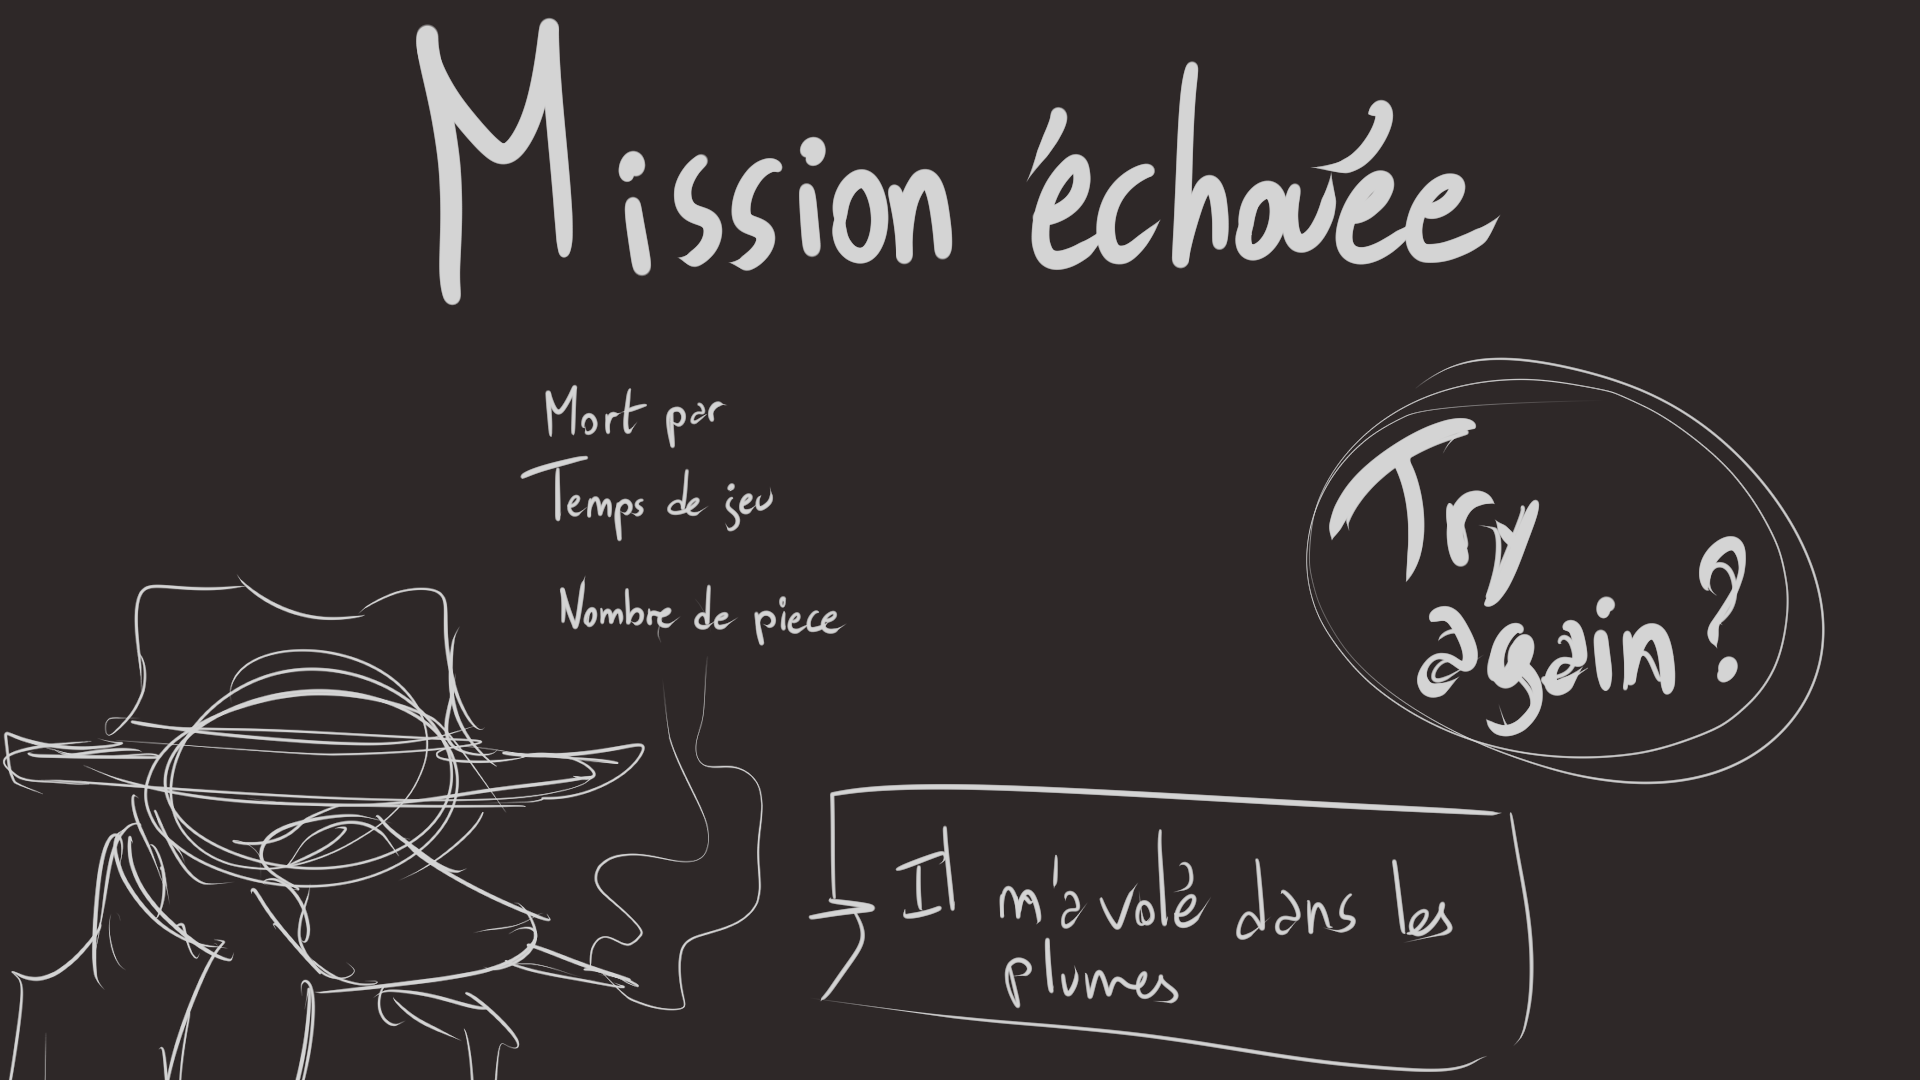 Mission échouée
Mort par
Temps de jeu
Nombre de piece
Try
again ?
Il m'a volé dans les
plumes